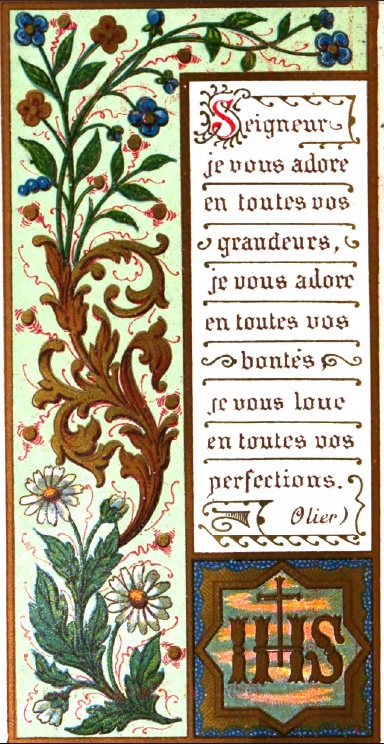 Seigneur
je vous adore
en toutes vos
grandeurs,
je vous adore
en toutes vos
bontés
je vous loue
en toutes vos
perfections.
Olier)
IHS